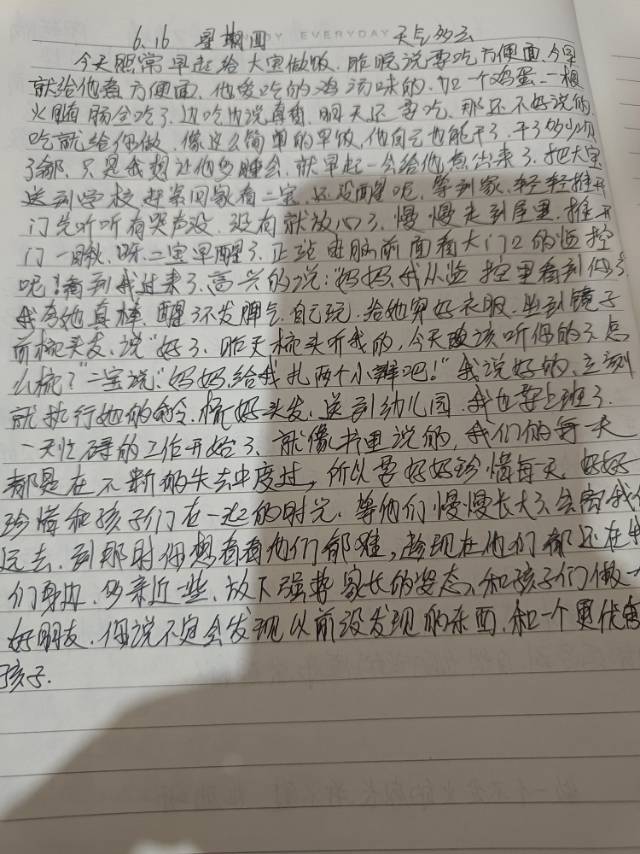 EVERYDAY
6.16 星期四 天气多云
今天照常早起给大宝做饭,昨晚说要吃方便面,今早
就给他煮方便面,他爱吃的鸡汤味的,加一个鸡蛋,一根
火腿肠全吃了,边吃边说真香,明天还要吃,那还不好说的,
吃就给你做,像这么简单的早饭,他自己也能干了,干了多少次
了都,只是我想让他多睡会,就早起一会给他煮出来了,把大宝
送到学校赶紧回家看二宝,还没醒呢,等到家,轻轻推开
门先听听有哭声没,没有就放心了,慢慢走到屋里,推开
门一瞅,呀二宝早醒了,正站电脑前面看大门口的监控
呢!看到我过来了,高兴的说:"妈妈,我从监控里看到你了,
我夸她真棒,醒了不发脾气,自己玩,给她穿好衣服,坐到镜子
前梳头发,说"好了,昨天梳头听我的,今天改该听你的了,怎
么梳?"二宝说:"妈妈,给我扎两个小辫吧!"我说好的,立刻
就执行她的命令,梳好头发,送到幼儿园,我也要上班了,
一天忙碌的工作开始了,就像书里说的,我们的每一天
都是在不断的失去中度过,所以要好好珍惜每天,好好
珍惜和孩子们在一起的时光,等他们慢慢长大了会离我们
远去,到那时你想看看他们都难,趁现在他们都还在
们身边,多亲近些,放下强势家长的姿态,和孩子们做
好朋友,你说不定会发现以前没发现的东西,和一个更优
孩子.